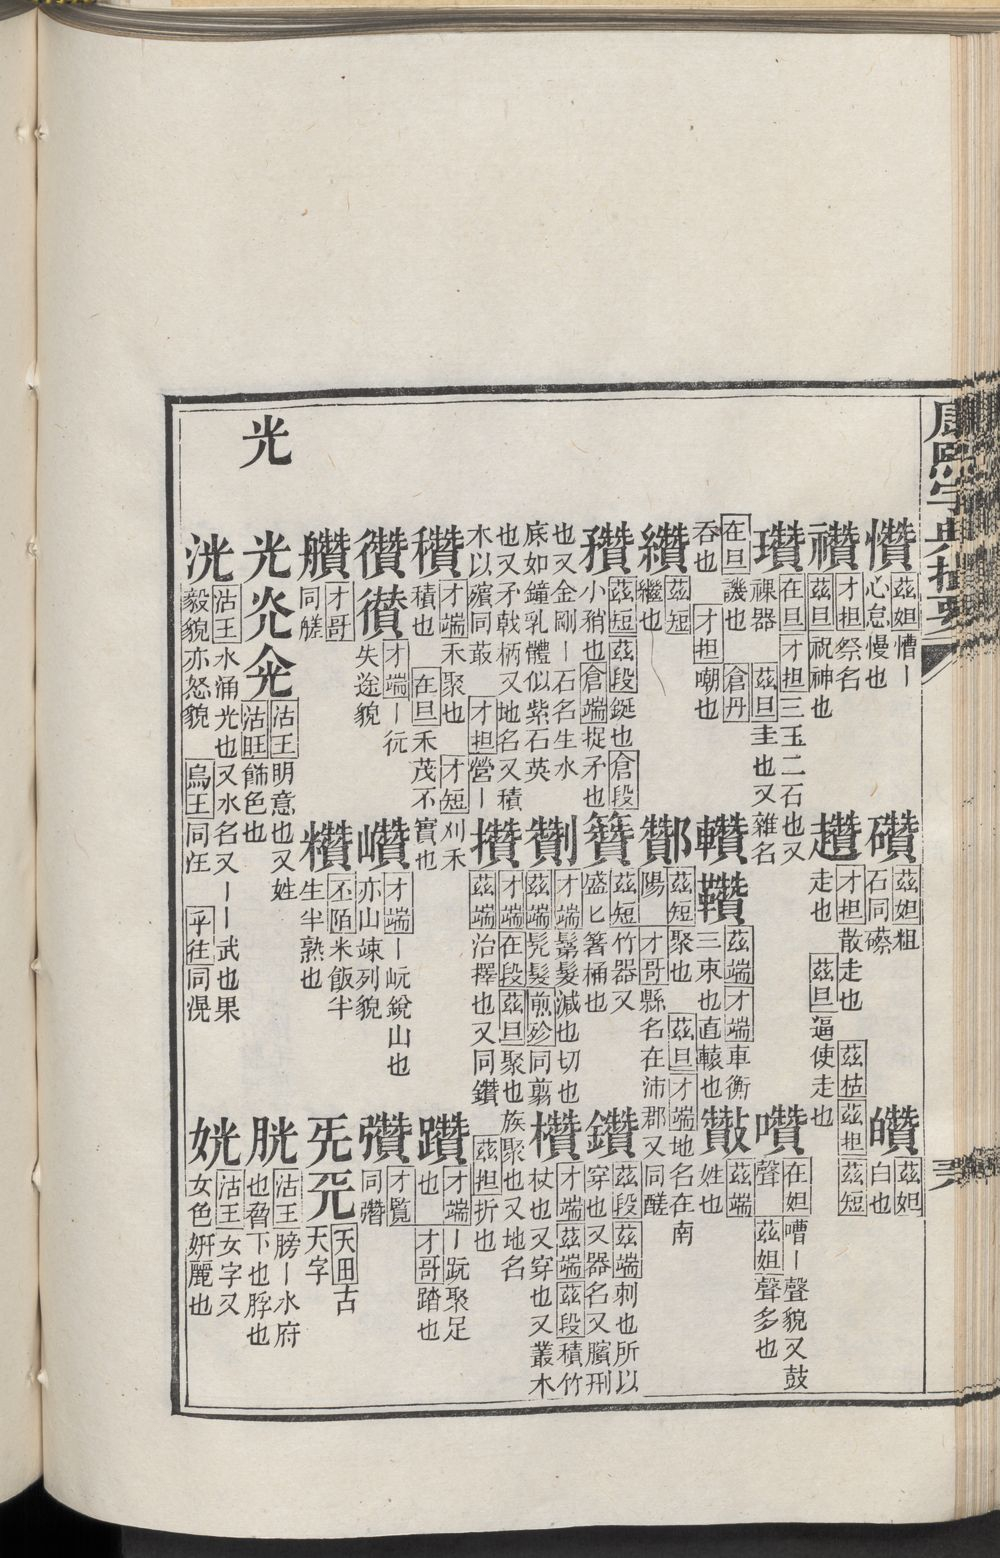 康熙字典撮要
㦫茲妲慒丨心怠慢也
礸茲妲粗石同礤
𤿀茲妲白也
禶才担祭名茲旦祝神也
趲才担散走也茲旦逼使走也茲枯茲担茲短
瓚在旦才担三玉二石也又祼器茲旦圭也又雜名
囋在妲嘈丨聲貌又鼓聲茲妲聲多也
在旦譏也倉丹吞也才担嘲也
纘茲短繼也
酇茲短聚也茲旦才端地名在南陽才哥縣名在沛郡又同醝
茲端才端車衡三束也直轅也
茲端姓也
茲短茲段鋋也倉段小矟也倉端捉矛也
籫茲短竹器又盛匕箸桶也
鑽茲段茲端刺也所以穿也又器名又臏刑
也又金剛丨石名生水底如鐘乳體似紫石英
也又矛戟柄又地名又積木以殯同菆才担營丨
劗才端鬋髮減也切也茲端髡髮煎㱽同翦
欑才端茲端茲段積竹杖也又穿也又叢木
攢才端在段茲旦聚也族聚也又地名茲端治擇也又同鑽茲担折也
穳才端禾聚也才短刈禾積也在旦禾茂不實也
躦才端丨趼聚足也才哥踏也
才端丨衏失途貌
巑才端丨岏銳山也亦山竦列貌
才覧同𢐎
才哥同艖
䊳丕陌米飯半生半熟也
兂天田古天字
光
光灮炛沽王明意也又姓沽旺飾色也
胱沽王膀丨水府也脅下也脬也
洸沽王水涌光也又水名又丨丨武也果毅貌亦怒貌烏王同汪乎往同滉
姯沽王女字又女色妍麗也